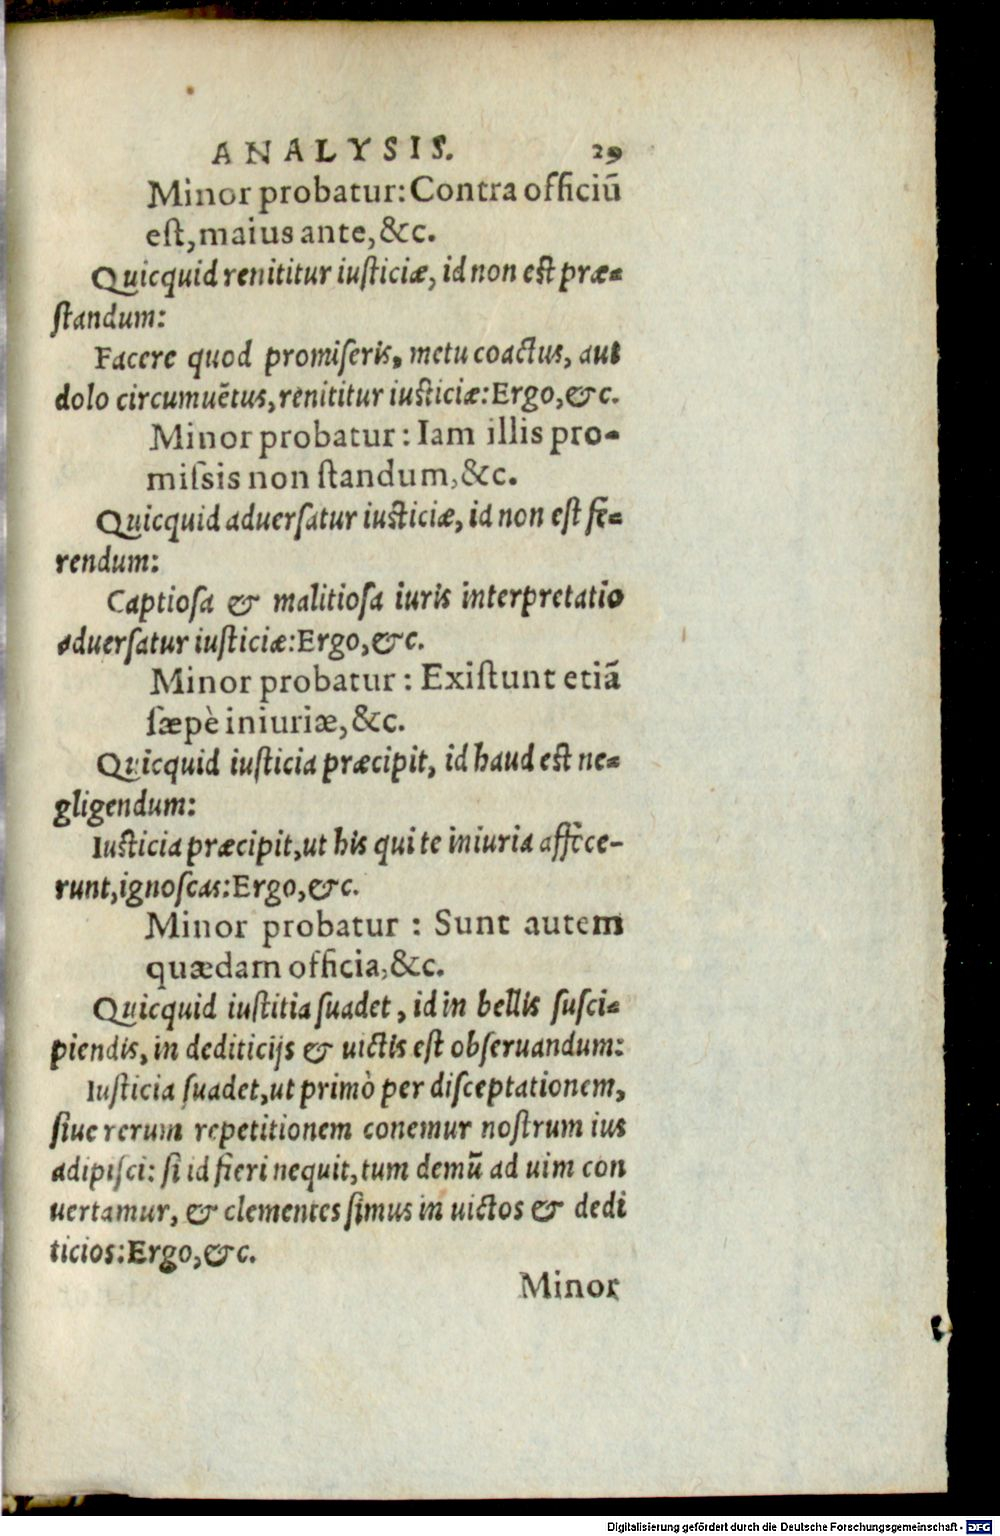 ANALYSIS. 29
Minor probatur: Contra officiū
eſt, maius ante, &c.
Quicquid renititur iuſticiæ, id non eſt præ-
ſtandum:
Facere quod promiſeris, metu coactus, aut
dolo circumuētus, renititur iuſticiæ: Ergo, &c.
Minor probatur: Iam illis pro-
miſsis non ſtandum, &c.
Quicquid aduerſatur iuſticiæ, id non eſt fe-
rendum:
Captioſa & malitioſa iuris interpretatio
aduerſatur iuſticiæ: Ergo, &c.
Minor probatur: Exiſtunt etiā
ſæpè iniuriæ, &c.
Quicquid iuſticia præcipit, id haud eſt ne-
gligendum:
Iuſticia præcipit, ut his qui te iniuria affece-
runt, ignoſcas: Ergo, &c.
Minor probatur: Sunt autem
quædam officia, &c.
Quicquid iuſtitia ſuadet, id in bellis ſuſci-
piendis, in dediticijs & uictis eſt obſeruandum:
Iuſticia ſuadet, ut primò per diſceptationem,
ſiue rerum repetitionem conemur noſtrum ius
adipiſci: ſi id fieri nequit, tum demū ad uim con
uertamur, & clementes ſimus in uictos & dedi
ticios: Ergo, &c.
Minor
Digitalisierung gefördert durch die Deutsche Forschungsgemeinschaft - DFG